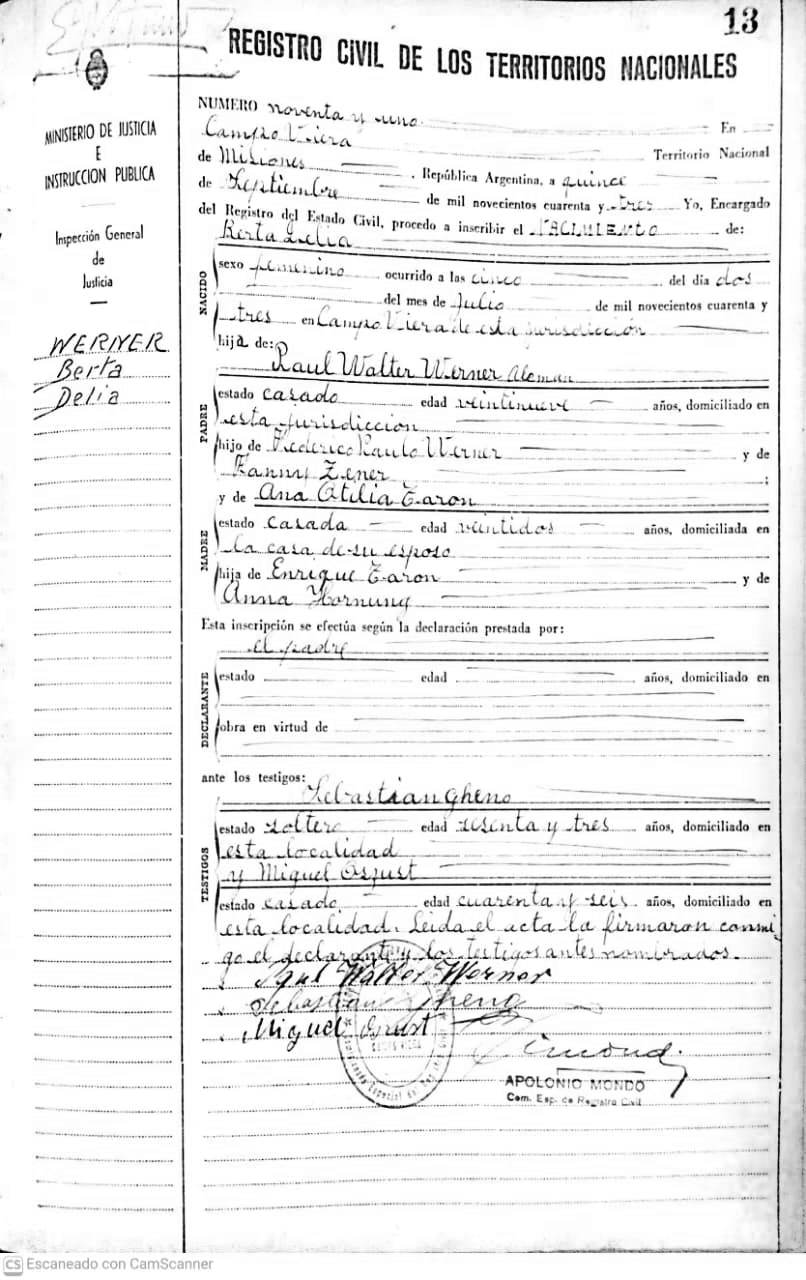 13
REGISTRO CIVIL DE LOS TERRITORIOS NACIONALES
MINISTERIO DE JUSTICIA
E
INSTRUCCION PUBLICA
Inspección General
de
Justicia
WERNER
Berta
Delia
NUMERO noventa y uno En
Campo Viera Territorio Nacional
de Misiones , República Argentina, a quince
de Septiembre de mil novecientos cuarenta y tres Yo, Encargado
del Registro del Estado Civil, procedo a inscribir el NACIMIENTO de:
Berta Delia
NACIDO
sexo femenino ocurrido a las cinco del dia dos
del mes de Julio de mil novecientos cuarenta y
tres en Campo Viera de esta jurisdicción
hija de:
Raul Walter Werner Aleman
PADRE
estado casado edad veintinueve años, domiciliado en
esta jurisdiccion
hijo de Federico Paulo Werner y de
Fanny Zener ;
y de Ana Otilia Taron
MADRE
estado casada edad veintidos años, domiciliada en
la casa de su esposo
hija de Enrique Taron y de
Anna Hornung
Esta inscripción se efectúa según la declaración prestada por:
el padre
DECLARANTE
estado edad años, domiciliado en
obra en virtud de
ante los testigos:
Sebastian Gheno
TESTIGOS
estado soltero edad sesenta y tres años, domiciliado en
esta localidad
y Miguel Oszust
estado casado edad cuarenta y seis años, domiciliado en
esta localidad. Leida el acta la firmaron conmi
go el declarante y los testigos antes nombrados.
Raul Walter Werner
Sebastian Gheno
Miguel Oszust
APOLONIO MONDO
Com. Esp. de Registro Civil
CS Escaneado con CamScanner